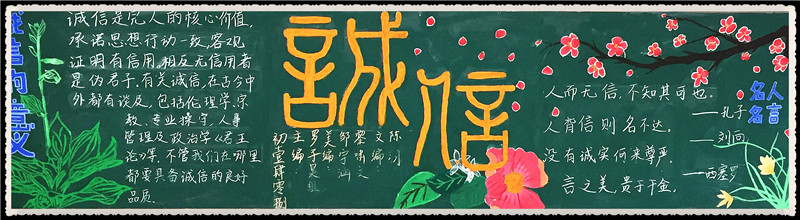 诚信的意义
诚信是完人的核心价值,
承诺思想行动一致,客观
证明有信用。相反无信用者
是伪君子。有关诚信,在古今中
外都有谈及,包括伦理学、宗
教、专业操守,人事
管理及政治学《君王
论》等,不管我们在哪里
都要具备诚信的良好
品质。
誠信
文编:陈
美编:邹宇
主编:罗
人而无信,不知其可也。
——孔子
人背信则名不达。
——刘向
没有诚实何来尊严。
——西塞罗
言之美,贵于千金。
名人名言